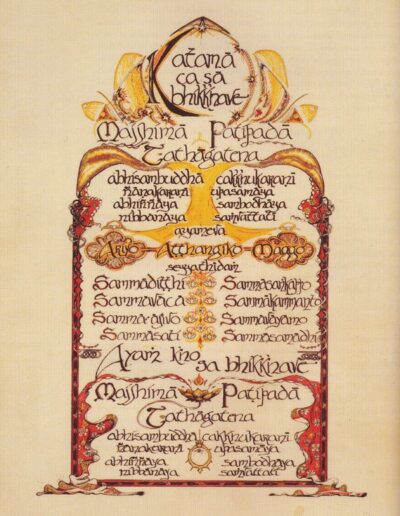 Katamā
ca sā
bhikkhave
Majjhimā Paṭipadā
Tathāgatena
abhisambuddhā cakkhukaraṇī
ñāṇakaraṇī upasamāya
abhiññāya sambodhāya
nibbānāya saṃvattati
ayameva
Ariyo Aṭṭhaṅgiko Maggo
seyyathīdaṃ
Sammādiṭṭhi Sammāsaṅkappo
Sammāvācā Sammākammanto
Sammā-ājīvo Sammāvāyāmo
Sammāsati Sammāsamādhi
Ayaṃ kho sā bhikkhave
Majjhimā Paṭipadā
Tathāgatena
abhisambuddhā cakkhukaraṇī
ñāṇakaraṇī upasamāya
abhiññāya sambodhāya
nibbānāya saṃvattati